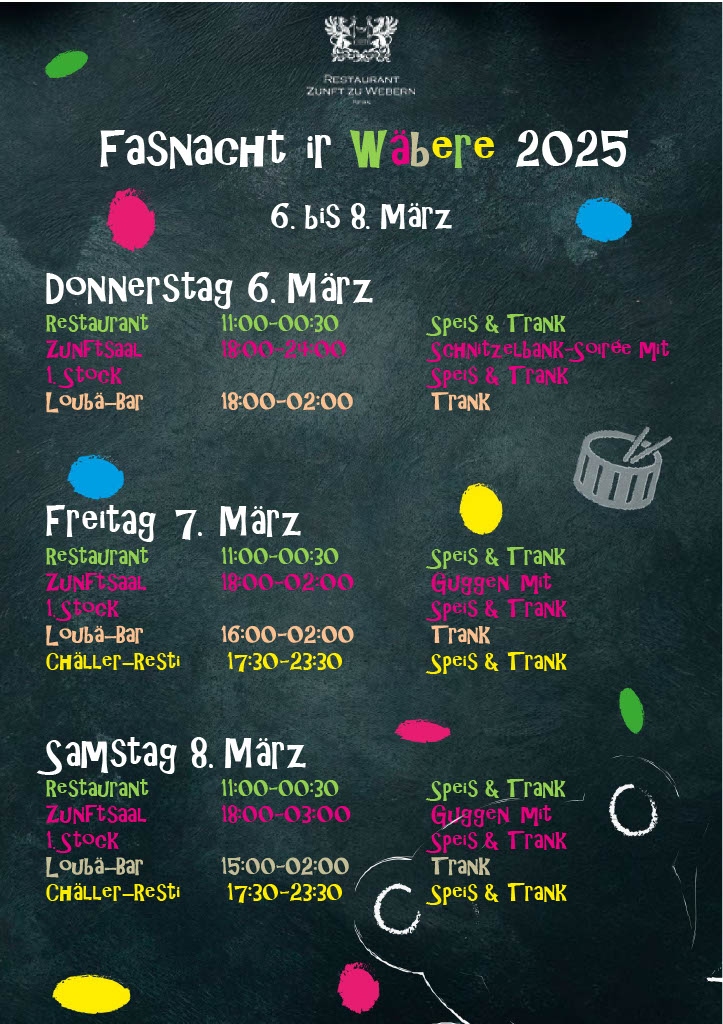 Restaurant
Zunft zu Webern
Bern
Fasnacht ir Wäbere 2025
6. bis 8. März
Donnerstag 6. März
Restaurant 11:00-00:30 Speis & Trank
Zunftsaal 18:00-24:00 Schnitzelbank-Soirée mit
1. Stock Speis & Trank
Loubä-Bar 18:00-02:00 Trank
Freitag 7. März
Restaurant 11:00-00:30 Speis & Trank
Zunftsaal 18:00-02:00 Guggen mit
1. Stock Speis & Trank
Loubä-Bar 16:00-02:00 Trank
Chäller-Resti 17:30-23:30 Speis & Trank
Samstag 8. März
Restaurant 11:00-00:30 Speis & Trank
Zunftsaal 18:00-03:00 Guggen mit
1. Stock Speis & Trank
Loubä-Bar 15:00-02:00 Trank
Chäller-Resti 17:30-23:30 Speis & Trank